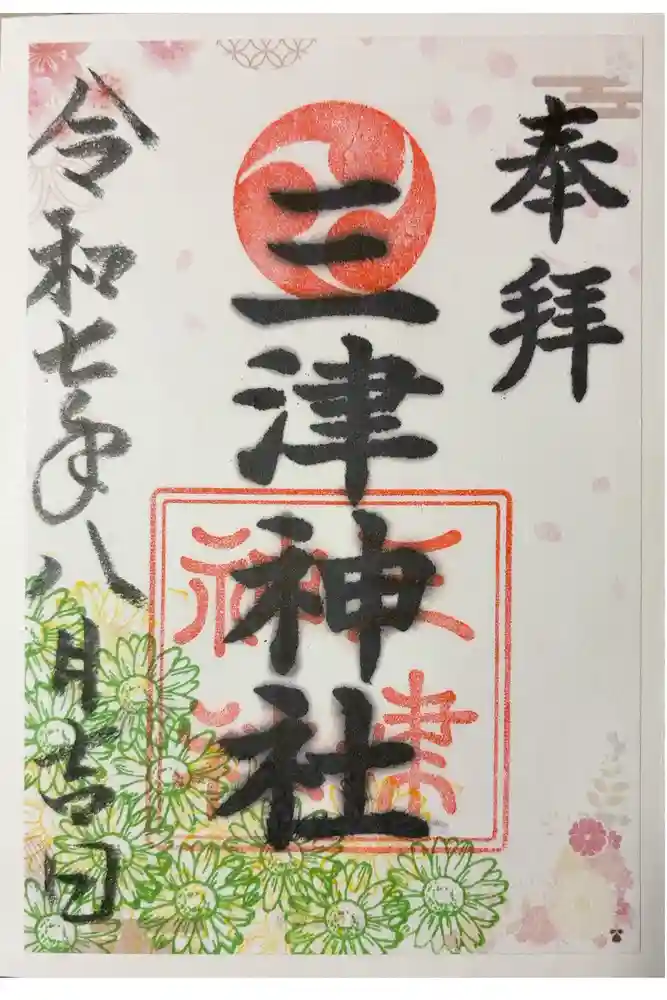 奉拝
三津神社
三津神社
令和七年八月吉日